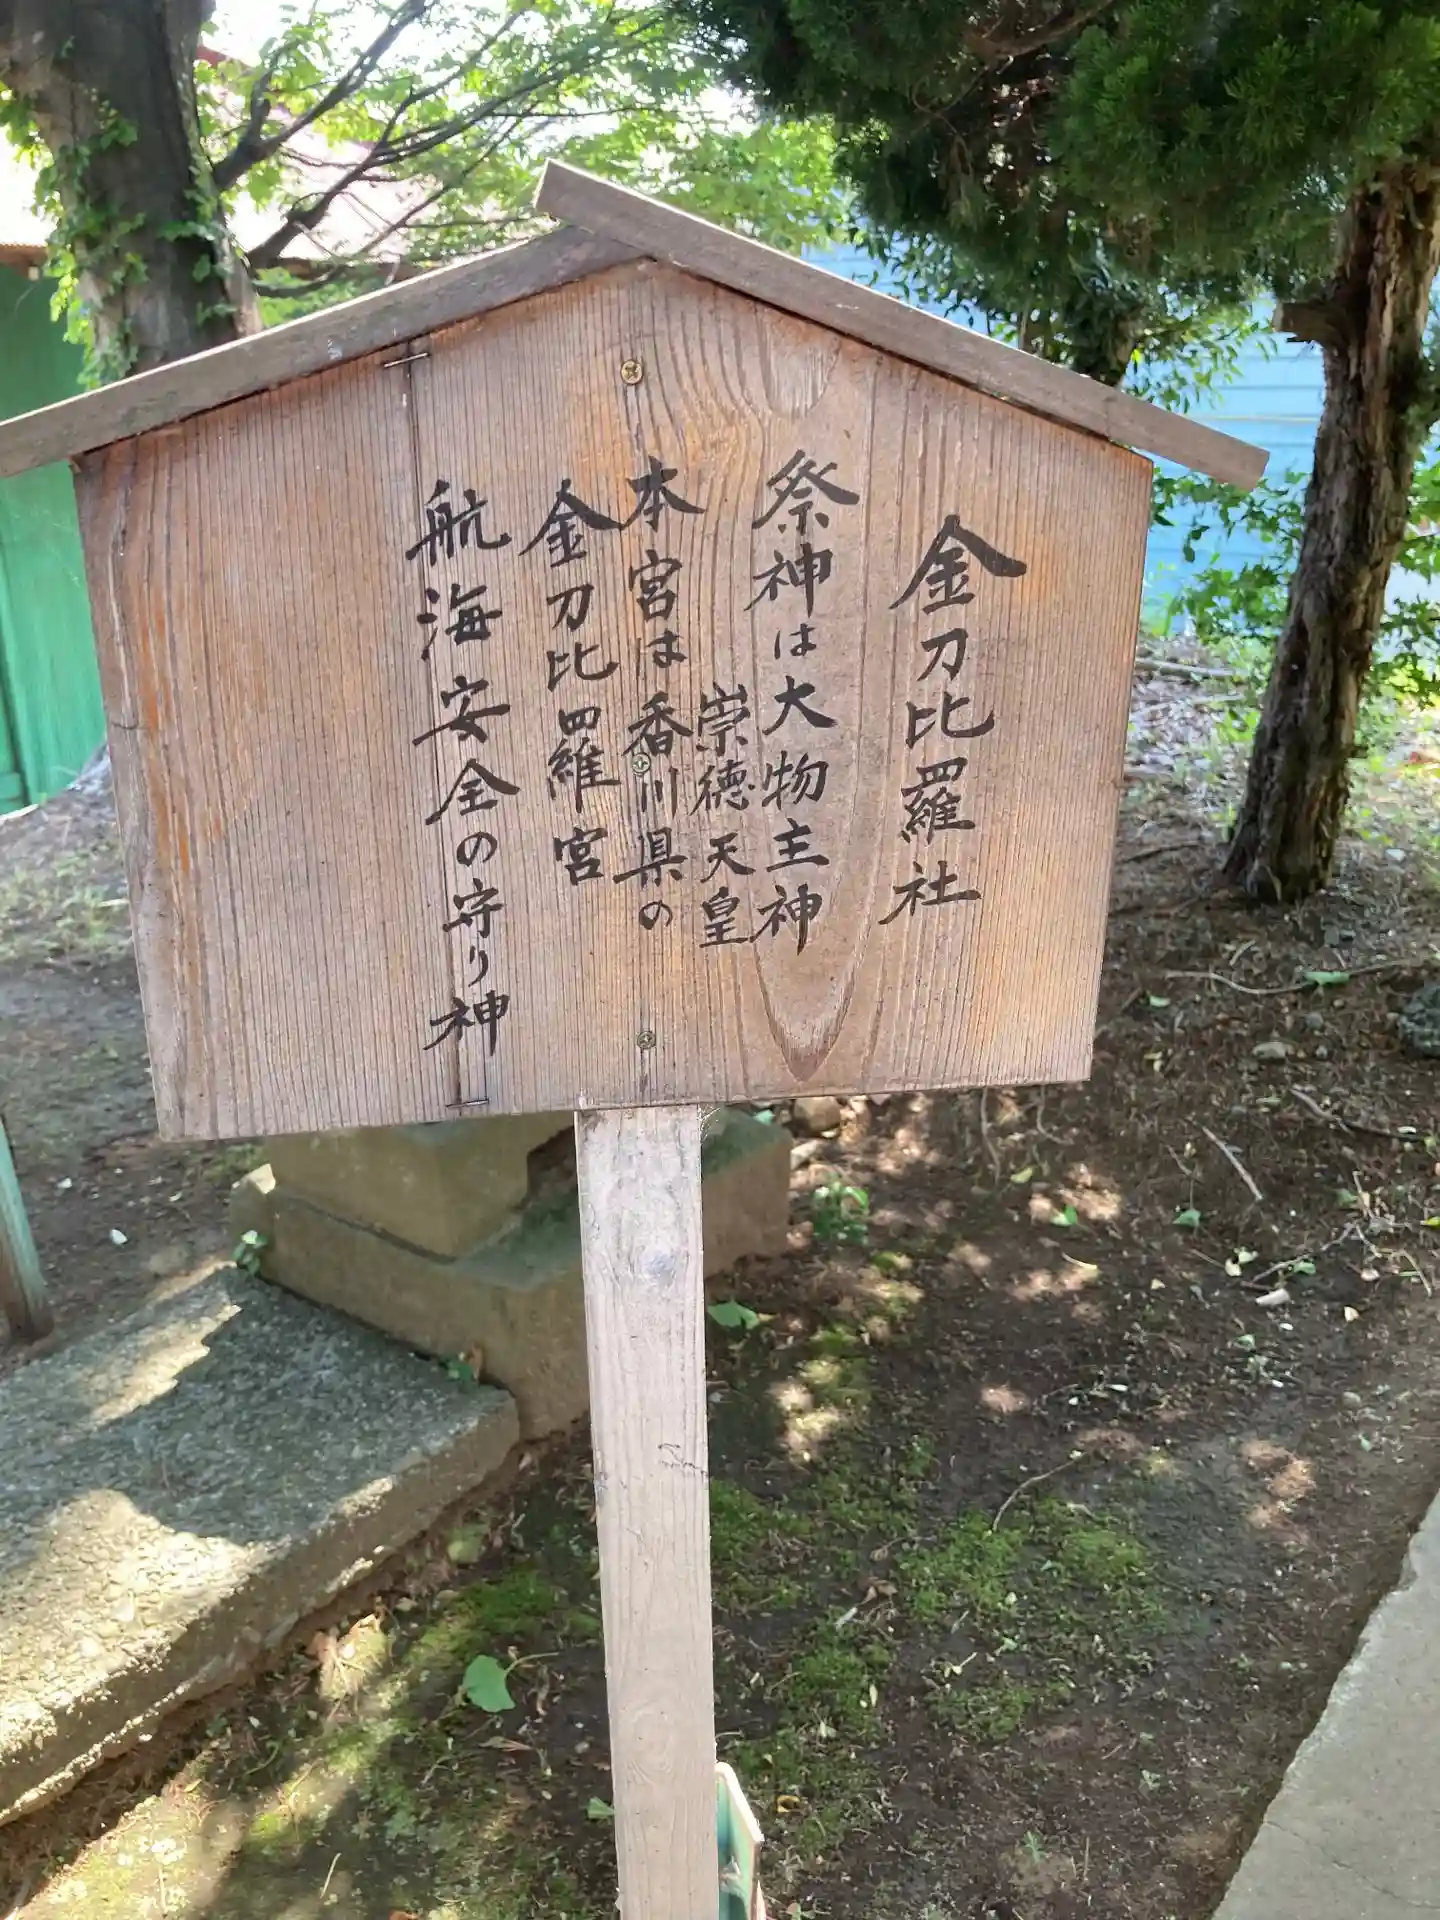 金刀比羅社
祭神は大物主神
崇徳天皇
本宮は香川県の
金刀比羅宮
航海安全の守り神